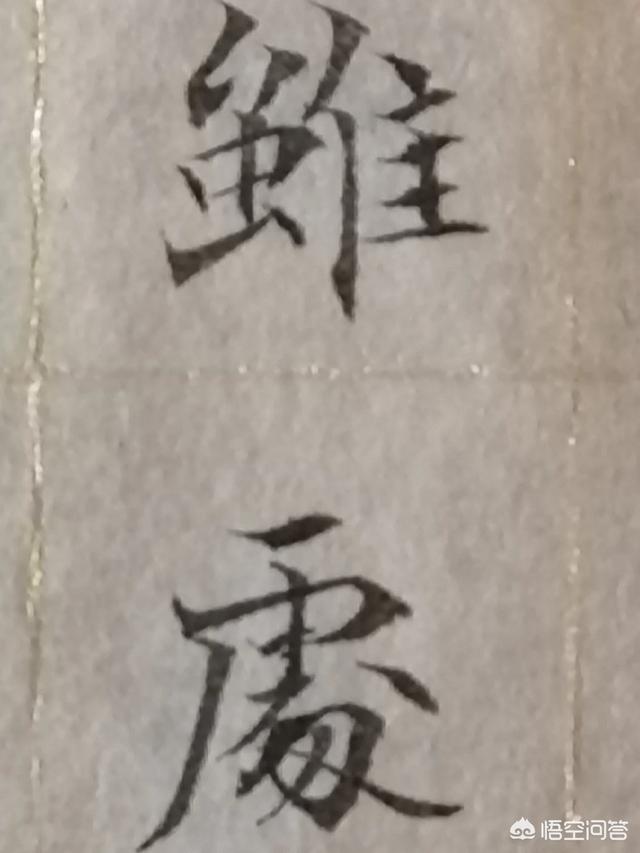 雖
處
悟空问答